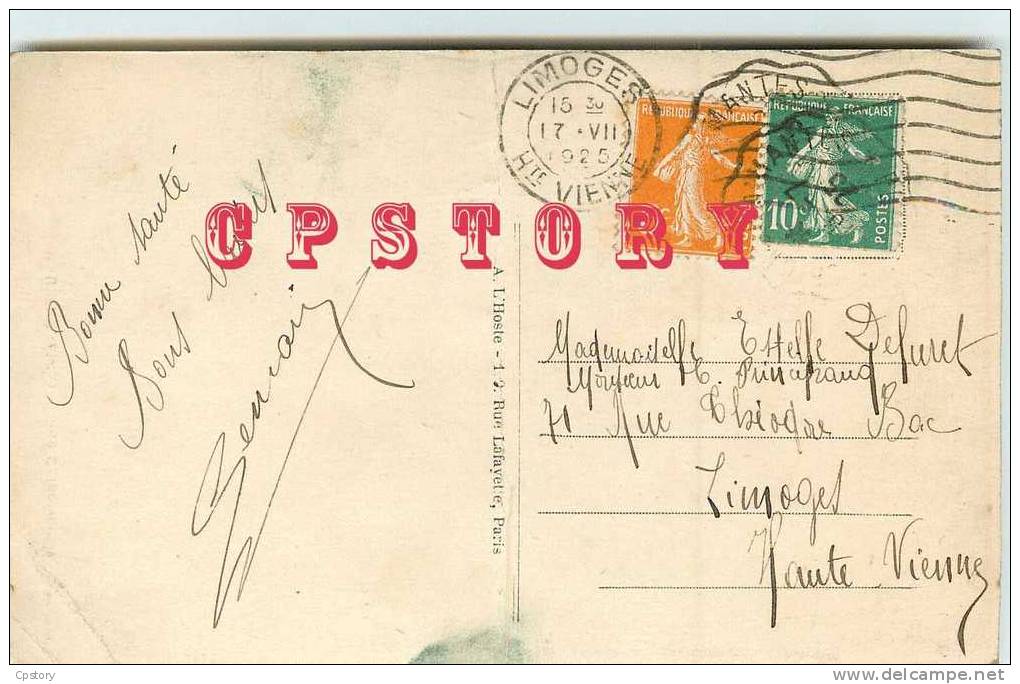 LIMOGES
15 30
17 · VII
1925
HTE VIENNE
NANTES
REPUBLIQUE FRANÇAISE
REPUBLIQUE FRANÇAISE
10c
POSTES
CPSTORY
Bonne santé
Bons baisers
Germain
A. L'Hoste - 19, Rue Lafayette, Paris
Mademoiselle Estelle Defuret
Monsieur E.
71 Rue Théodore Bac
Limoges
Haute Vienne
Cpstory
delcampe.net